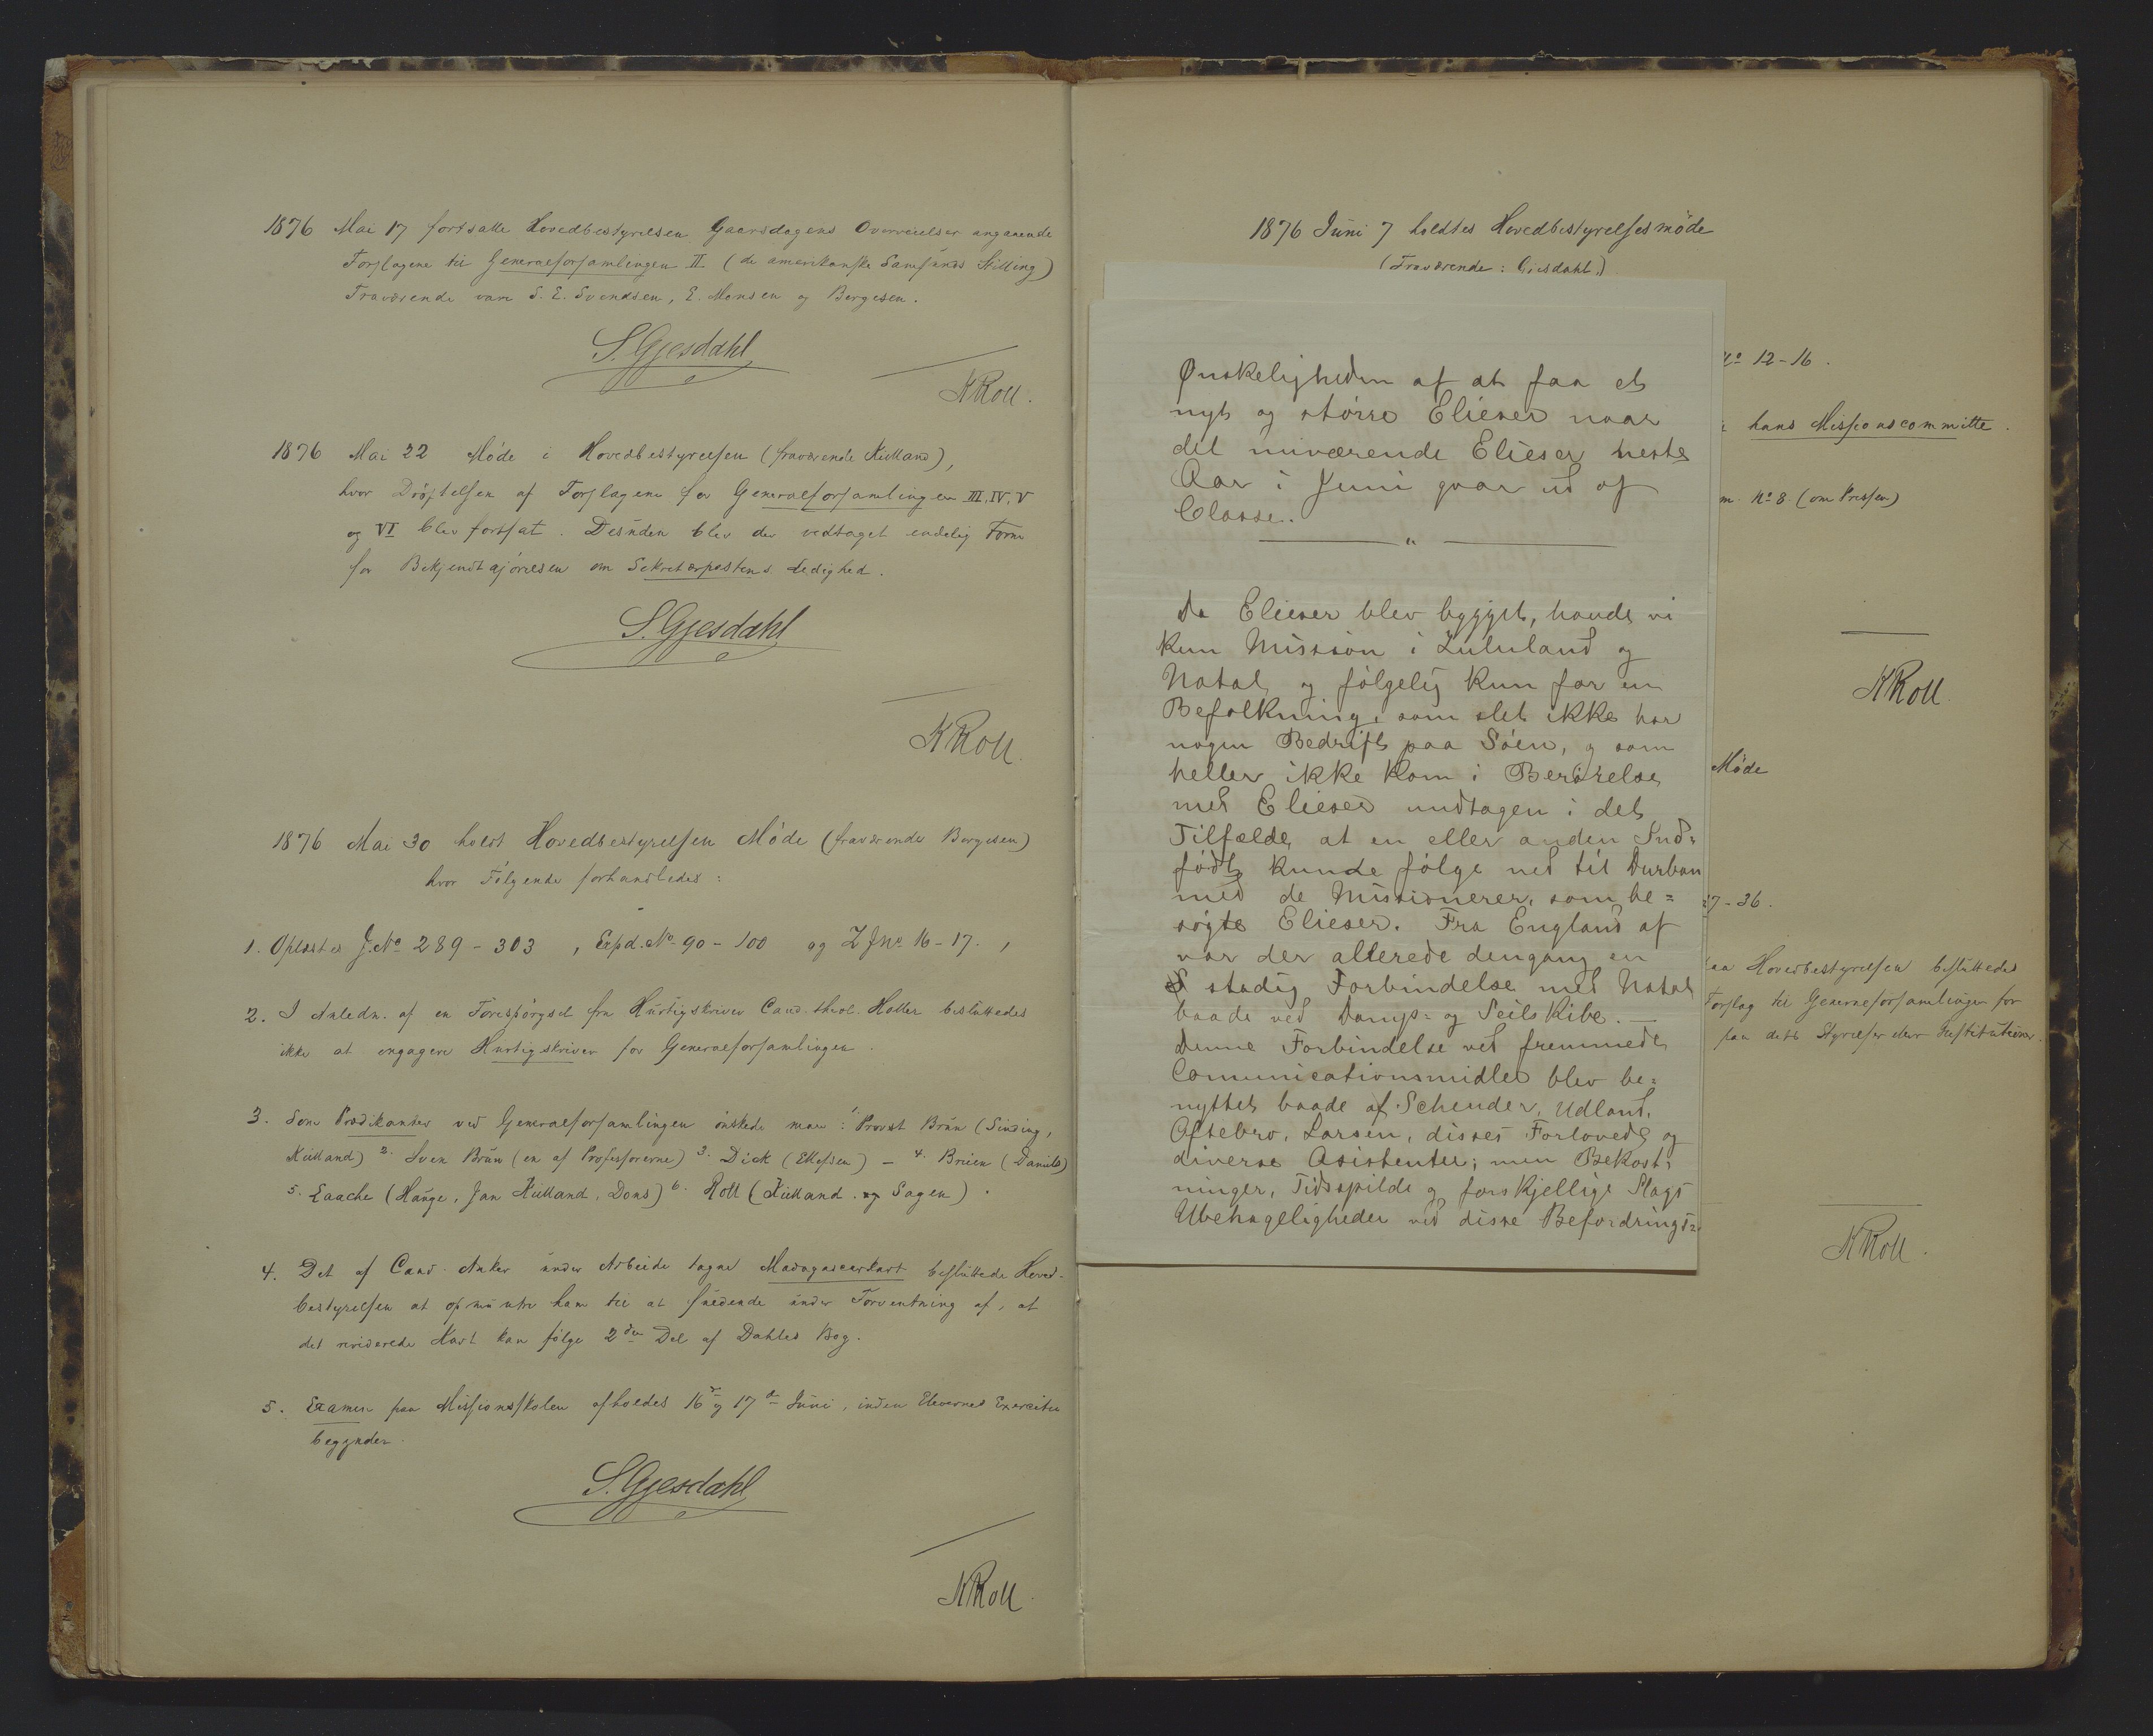 1876 Mai 17 fortsatte Hovedbestyrelsen Gaarsdagens Overveielser angaaende
Forslagene til Generalforsamlingen II (de amerikanske Samfunds Stilling)
Fraværende vare S. E. Svendsen, E. Monsen og Borgesen.
S. Gjesdahl
KRoll.
1876 Mai 22 Møde i Hovedbestyrelsen (fraværende Kielland),
hvor Drøftelsen af Forslagene for Generalforsamlingen III, IV, V
og VI blev fortsat. Desuden blev der vedtaget endelig Form
for Bekjendtgjørelsen om Sekretærpostens Ledighed.
S. Gjesdahl
KRoll.
1876 Mai 30 holdt Hovedbestyrelsen Møde (fraværende Borgesen)
hvor Følgende forhandledes:
1. Oplæstes J.No 289-303, Expd.No 90-100 og Z Jno 16-17.,
2. I Anledn. af en Forespørgsel fra Hurtigskriver Cand. theol. Holter besluttedes
ikke at engagere Hurtigskriver for Generalforsamlingen.
3. Som Prædikanter ved Generalforsamlingen ønskede man: 1. Provst Brun (Sinding,
Kielland) 2. Sven Brun (en af Professorerne) 3. Dick (Ellefsen) - 4. Breien (Daniels)
5. Laache (Hauge, Jan Kielland, Dons) 6. Roll (Kielland og Sagen).
4. Det af Cand. Anker under Arbeide tagne Madagascarkart besluttede Hoved-
bestyrelsen at opmuntre ham til at fuldende under Forventning af, at
det reviderede Kart kan følge 2den Del af Dahles Bog.
5. Examen paa Missionsskolen afholdes 16de og 17de Juni, inden Elevernes Exercitie
begynder.
S. Gjesdahl
KRoll.
1876 Juni 7 holdtes Hovedbestyrelsesmøde
(Fraværende: Gjesdahl.)
No 12-16.
hans Missionscommitte.
No 8. (om Pressen)
KRoll.
Møde
27-36.
Hovedbestyrelsen besluttedes
Forslag til Generalforsamlingen for
paa dets Styrelse eller Institutioner.
KRoll.
Ønskeligheden af at faa et
nyt og større Elieser naar
det nuværende Elieser neste
Aar i Juni gaar ud af
Classe.
"
Da Elieser blev bygget, havde vi
kun Mission i Zululand og
Natal, og følgelig kun for en
Befolkning, som slet ikke har
nogen Bedrift paa Søen, og som
heller ikke kom i Berørelse
med Elieser undtagen i det
Tilfælde, at en eller anden Ind=
født kunde følge ned til Durban
med de Missionerer, som be=
søgte Elieser. Fra England af
var der allerede dengang en
stadig Forbindelse med Natal
baade ved Damp= og Seilskibe. —
Denne Forbindelse ved fremmede
Comunicationsmidler blev be=
nyttet baade af Schreuder, Udland,
Oftebro, Larsen, disses Forlovede og
diverse Asistenter; men Bekost=
ninger, Tidsspilde og forskjellige Slags
Ubehageligheder ved disse Befordrings=